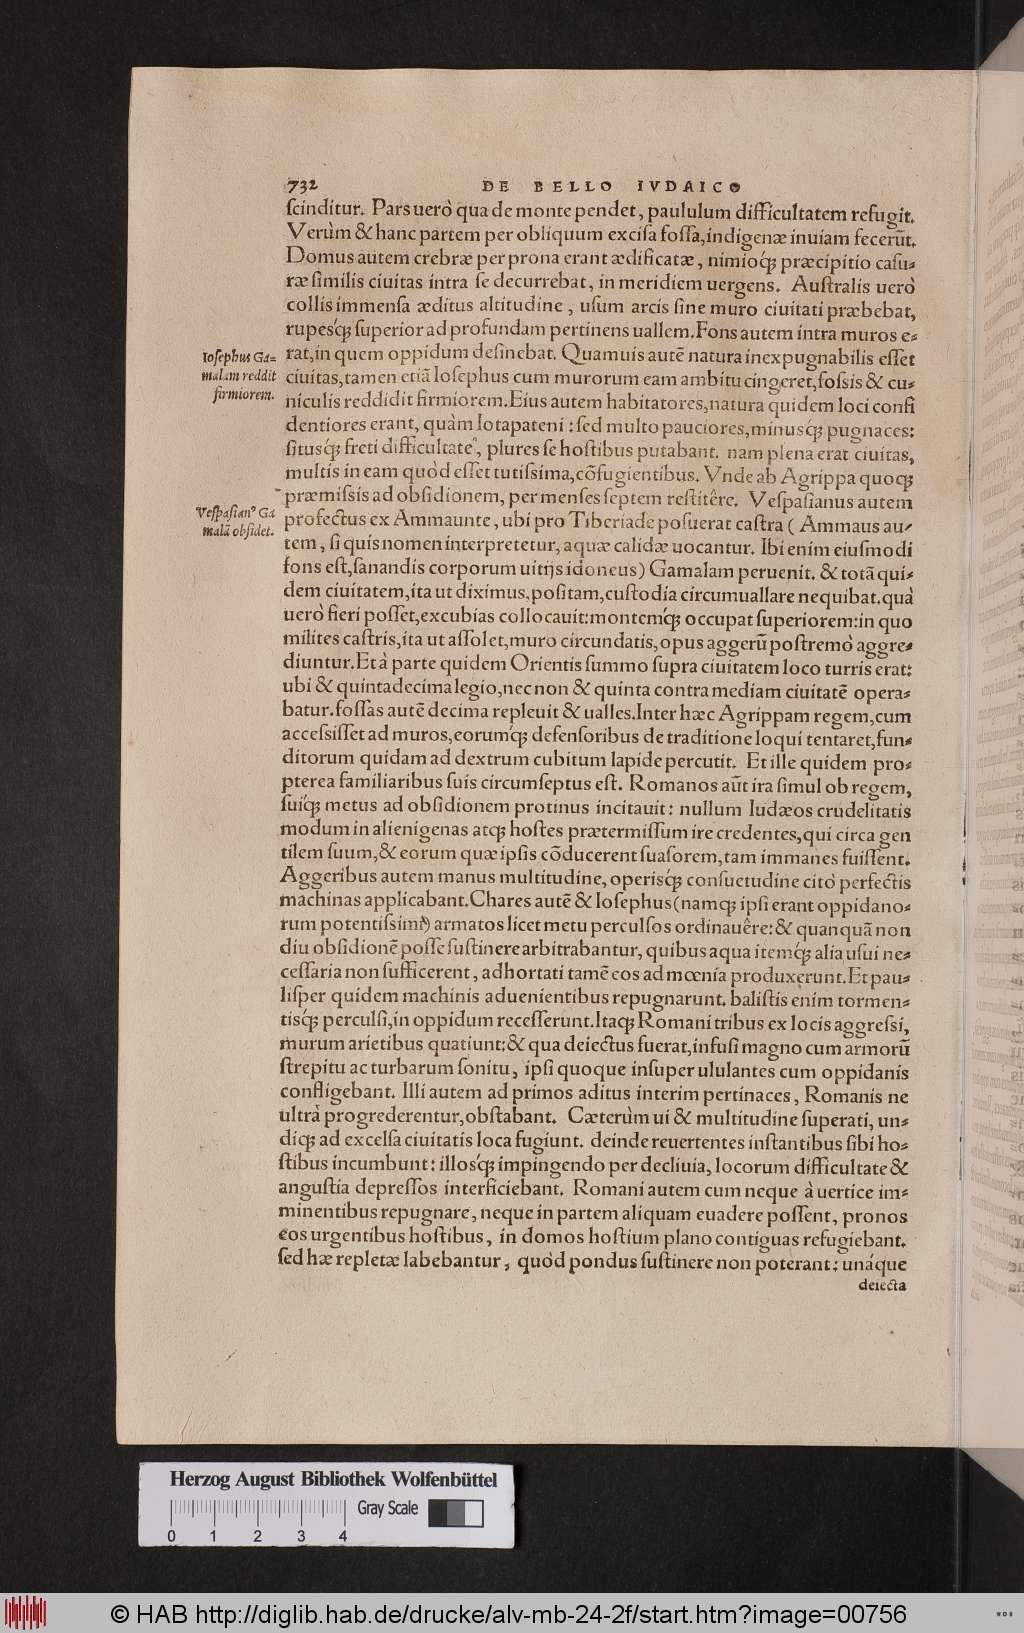 732 DE BELLO IVDAICO
ſcinditur. Pars uerò qua de monte pendet, paululum difficultatem refugit.
Verùm & hanc partem per obliquum exciſa foſſa, indigenæ inuiam fecerūt.
Domus autem crebræ per prona erant ædificatæ, nimioq́ꝫ præcipitio caſu⸗
ræ ſimilis ciuitas intra ſe decurrebat, in meridiem uergens. Auſtralis uerò
collis immenſa æditus altitudine, uſum arcis ſine muro ciuitati præbebat,
rupesq́ꝫ ſuperior ad profundam pertinens uallem. Fons autem intra muros e⸗
Ioſephus Ga⸗
malam reddit
firmiorem.
rat, in quem oppidum deſinebat. Quamuis autē natura inexpugnabilis eſſet
ciuitas, tamen etiā Ioſephus cum murorum eam ambitu cingeret, foſsis & cu⸗
niculis reddidit firmiorem. Eius autem habitatores, natura quidem loci confi
dentiores erant, quàm Iotapateni: ſed multo pauciores, minusq́ꝫ pugnaces:
ſitusq́ꝫ freti difficultate, plures ſe hoſtibus putabant. nam plena erat ciuitas,
multis in eam quòd eſſet tutiſsima, cōfugientibus. Vnde ab Agrippa quoqꝫ
præmiſsis ad obſidionem, per menſes ſeptem reſtitêre. Veſpaſianus autem
Veſpaſianꝰ Ga
malā obſidet.
profectus ex Ammaunte, ubi pro Tiberiade poſuerat caſtra (Ammaus au⸗
tem, ſi quis nomen interpretetur, aquæ calidæ uocantur. Ibi enim eiuſmodi
fons eſt, ſanandis corporum uitijs idoneus) Gamalam peruenit. & totā qui⸗
dem ciuitatem, ita ut diximus, poſitam, cuſtodia circumuallare nequibat. quà
uerò fieri poſſet, excubias collocauit: montemq́ꝫ occupat ſuperiorem: in quo
milites caſtris, ita ut aſſolet, muro circundatis, opus aggerū poſtremò aggre⸗
diuntur. Et à parte quidem Orientis ſummo ſupra ciuitatem loco turris erat:
ubi & quintadecima legio, nec non & quinta contra mediam ciuitatē opera⸗
batur. foſſas autē decima repleuit & ualles. Inter hæc Agrippam regem, cum
acceſsiſſet ad muros, eorumq́ꝫ defenſoribus de traditione loqui tentaret, fun⸗
ditorum quidam ad dextrum cubitum lapide percutit. Et ille quidem pro⸗
pterea familiaribus ſuis circumſeptus eſt. Romanos aūt ira ſimul ob regem,
ſuiq́ꝫ metus ad obſidionem protinus incitauit: nullum Iudæos crudelitatis
modum in alienigenas atqꝫ hoſtes prætermiſſum ire credentes, qui circa gen
tilem ſuum, & eorum quæ ipſis cōducerent ſuaſorem, tam immanes fuiſſent.
Aggeribus autem manus multitudine, operisq́ꝫ conſuetudine citò perfectis
machinas applicabant. Chares autē & Ioſephus (namqꝫ ipſi erant oppidano⸗
rum potentiſsimi) armatos licet metu perculſos ordinauêre: & quanquā non
diu obſidionē poſſe ſuſtinere arbitrabantur, quibus aqua itemq́ꝫ alia uſui ne⸗
ceſſaria non ſufficerent, adhortati tamē eos ad mœnia produxerunt. Et pau⸗
liſper quidem machinis aduenientibus repugnarunt. baliſtis enim tormen⸗
tisq́ꝫ perculſi, in oppidum receſſerunt. Itaqꝫ Romani tribus ex locis aggreſsi,
murum arietibus quatiunt: & qua deiectus fuerat, infuſi magno cum armorū
ſtrepitu ac turbarum ſonitu, ipſi quoque inſuper ululantes cum oppidanis
confligebant. Illi autem ad primos aditus interim pertinaces, Romanis ne
ultrà progrederentur, obſtabant. Cæterùm ui & multitudine ſuperati, un⸗
diqꝫ ad excelſa ciuitatis loca fugiunt. deinde reuertentes inſtantibus ſibi ho⸗
ſtibus incumbunt: illosq́ꝫ impingendo per decliuia, locorum difficultate &
anguſtia depreſſos interficiebant. Romani autem cum neque à uertice im⸗
minentibus repugnare, neque in partem aliquam euadere poſſent, pronos
eos urgentibus hoſtibus, in domos hoſtium plano contiguas refugiebant.
ſed hæ repletæ labebantur, quòd pondus ſuſtinere non poterant: unáque
deiecta
Herzog August Bibliothek Wolfenbüttel
Gray Scale
0 1 2 3 4
© HAB http://diglib.hab.de/drucke/alv-mb-24-2f/start.htm?image=00756